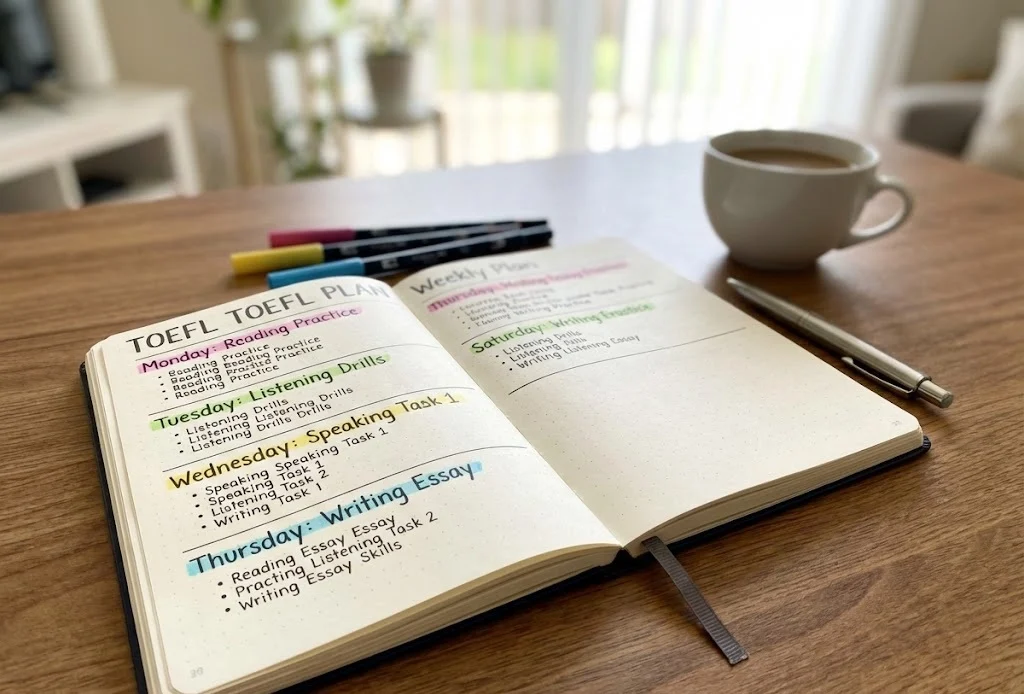 TOEFL TOEFL PLAN
Monday: Reading Practice
• Reading Practice
• Reading Reading Practice
• Reading Practice Practice
• Reading Practice
Tuesday: Listening Drills
• Listening Drills
• Listening Listening Drills
• Listening Drills Drills
Wednesday: Speaking Task 1
• Speaking Speaking Task 1
• Speaking Task 1
• Listening Task 2
• Writing Task 1
Thursday: Writing Essay
• Reading Essay Essay
• Practing Listening Task 2
• Writing Essay Skills
20
Weekly Plan
Thursday:
Saturday: Writing
• Listening Drills
• Listening
• Writing Listening Essay